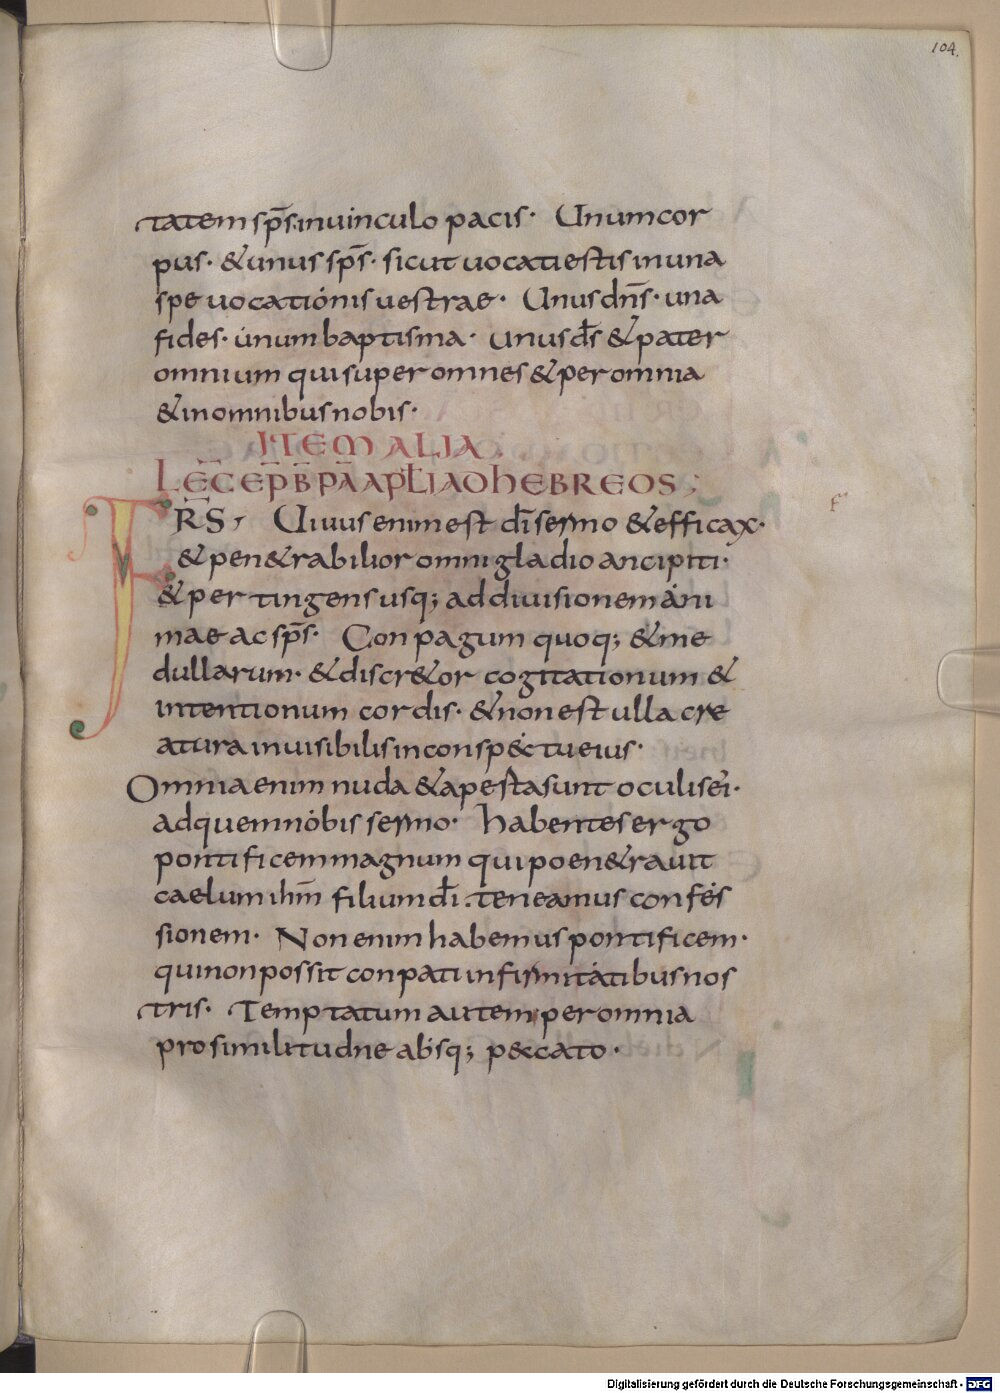 104.
tatem sp̄s. inuinculo pacis· Unum cor
pus· & unus sp̄s· sicut uocati estis in una
spe uocationis uestrae· Unus dn̄s· una
fides· unum baptisma· unus d̄s & pater
omnium qui super omnes & per omnia
& in omnibus nobis·
ITEM ALIA.
LEC̄ EP̄ B̄ PĀ APL̄I AD HEBREOS;
FRS, Uiuus enim est dī sermo & efficax·
& pen&rabilior omni gladio ancipiti·
& pertingens usq; ad diuisionem ani
mae ac sp̄s· Conpagum quoq; & me
dullarum· & discr&or cogitationum &
intentionum cordis· & non est ulla cre
atura inuisibilis in conspectu eius·
Omnia enim nuda & apesta sunt oculis ei·
ad quem nobis sermo· habentes ergo
pontificem magnum qui poen&rauit
caelum ihm̄ filium dī· teneamus confes
sionem· Non enim habemus pontificem·
qui non possit conpati infirmitatibus nos
tris· Temptatum autem per omnia
pro similitudne absq; peccato·
Digitalisierung gefördert durch die Deutsche Forschungsgemeinschaft - DFG